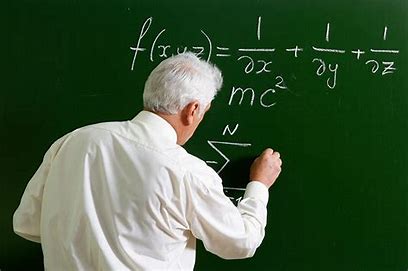 f(x,y,z) = 1/∂x + 1/∂y + 1/∂z
mc²
N
Σ